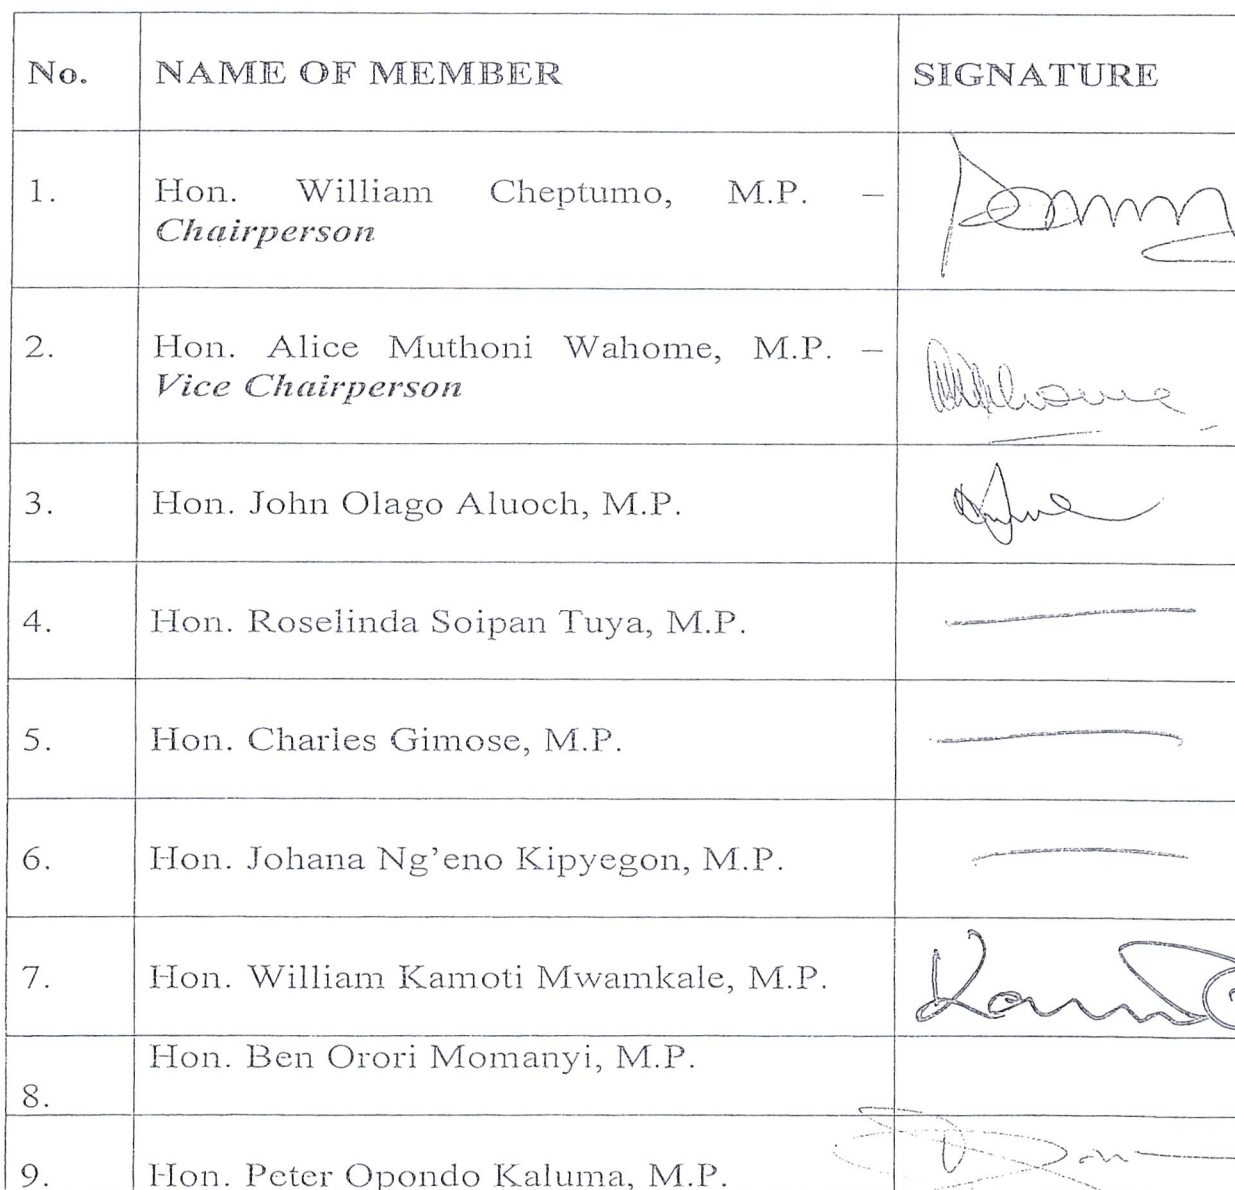 No. NAME OF MEMBER SIGNATURE
1. Hon. William Cheptumo, M.P. –
Chairperson
2. Hon. Alice Muthoni Wahome, M.P. –
Vice Chairperson
3. Hon. John Olago Aluoch, M.P.
4. Hon. Roselinda Soipan Tuya, M.P.
5. Hon. Charles Gimose, M.P.
6. Hon. Johana Ng’eno Kipyegon, M.P.
7. Hon. William Kamoti Mwamkale, M.P.
Hon. Ben Orori Momanyi, M.P.
8.
9. Hon. Peter Opondo Kaluma, M.P.